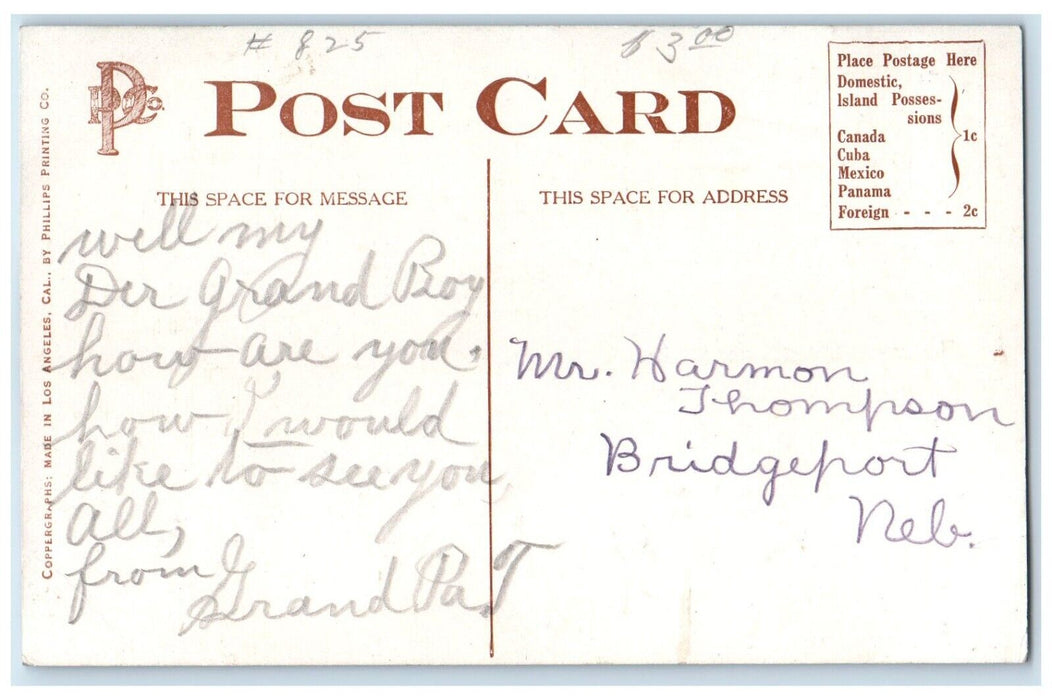 # 825
$3.00
PPCo.
POST CARD
Place Postage Here
Domestic,
Island Posses-
sions
Canada
Cuba
Mexico
Panama
1c
Foreign - - - 2c
THIS SPACE FOR MESSAGE
THIS SPACE FOR ADDRESS
COPPERGRAPHS: MADE IN LOS ANGELES, CAL., BY PHILLIPS PRINTING CO.
well my
Der Grand Boy
how are you.
how I would
like to see you
all,
from
Grand Pa. T
Mr. Harmon
Thompson
Bridgeport
Neb.